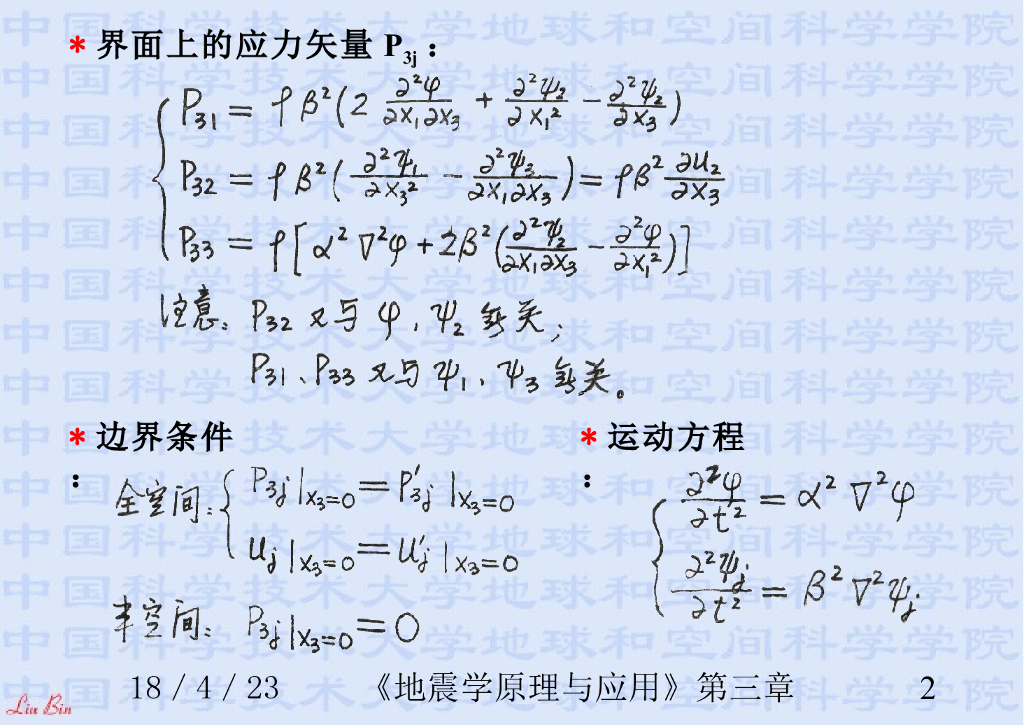 * 界面上的应力矢量 P3j：
P31 = ρβ²(2 ∂²φ/∂x1∂x3 + ∂²ψ2/∂x1² − ∂²ψ2/∂x3)
P32 = ρβ²(∂²ψ1/∂x3² − ∂²ψ3/∂x1∂x3) = ρβ² ∂u2/∂x3
P33 = ρ[α²∇²φ + 2β²(∂²ψ2/∂x1∂x3 − ∂²φ/∂x1²)]
注意：P32 又与 φ，ψ2 无关；
P31、P33 又与 ψ1、ψ3 无关。
* 边界条件：
全空间：P3j|x3=0 = P′3j|x3=0
uj|x3=0 = u′j|x3=0
半空间：P3j|x3=0 = 0
* 运动方程：
∂²φ/∂t² = α²∇²φ
∂²ψj/∂t² = β²∇²ψj
Liu Bin
18 / 4 / 23 《地震学原理与应用》第三章 2
中国科学技术大学地球和空间科学学院